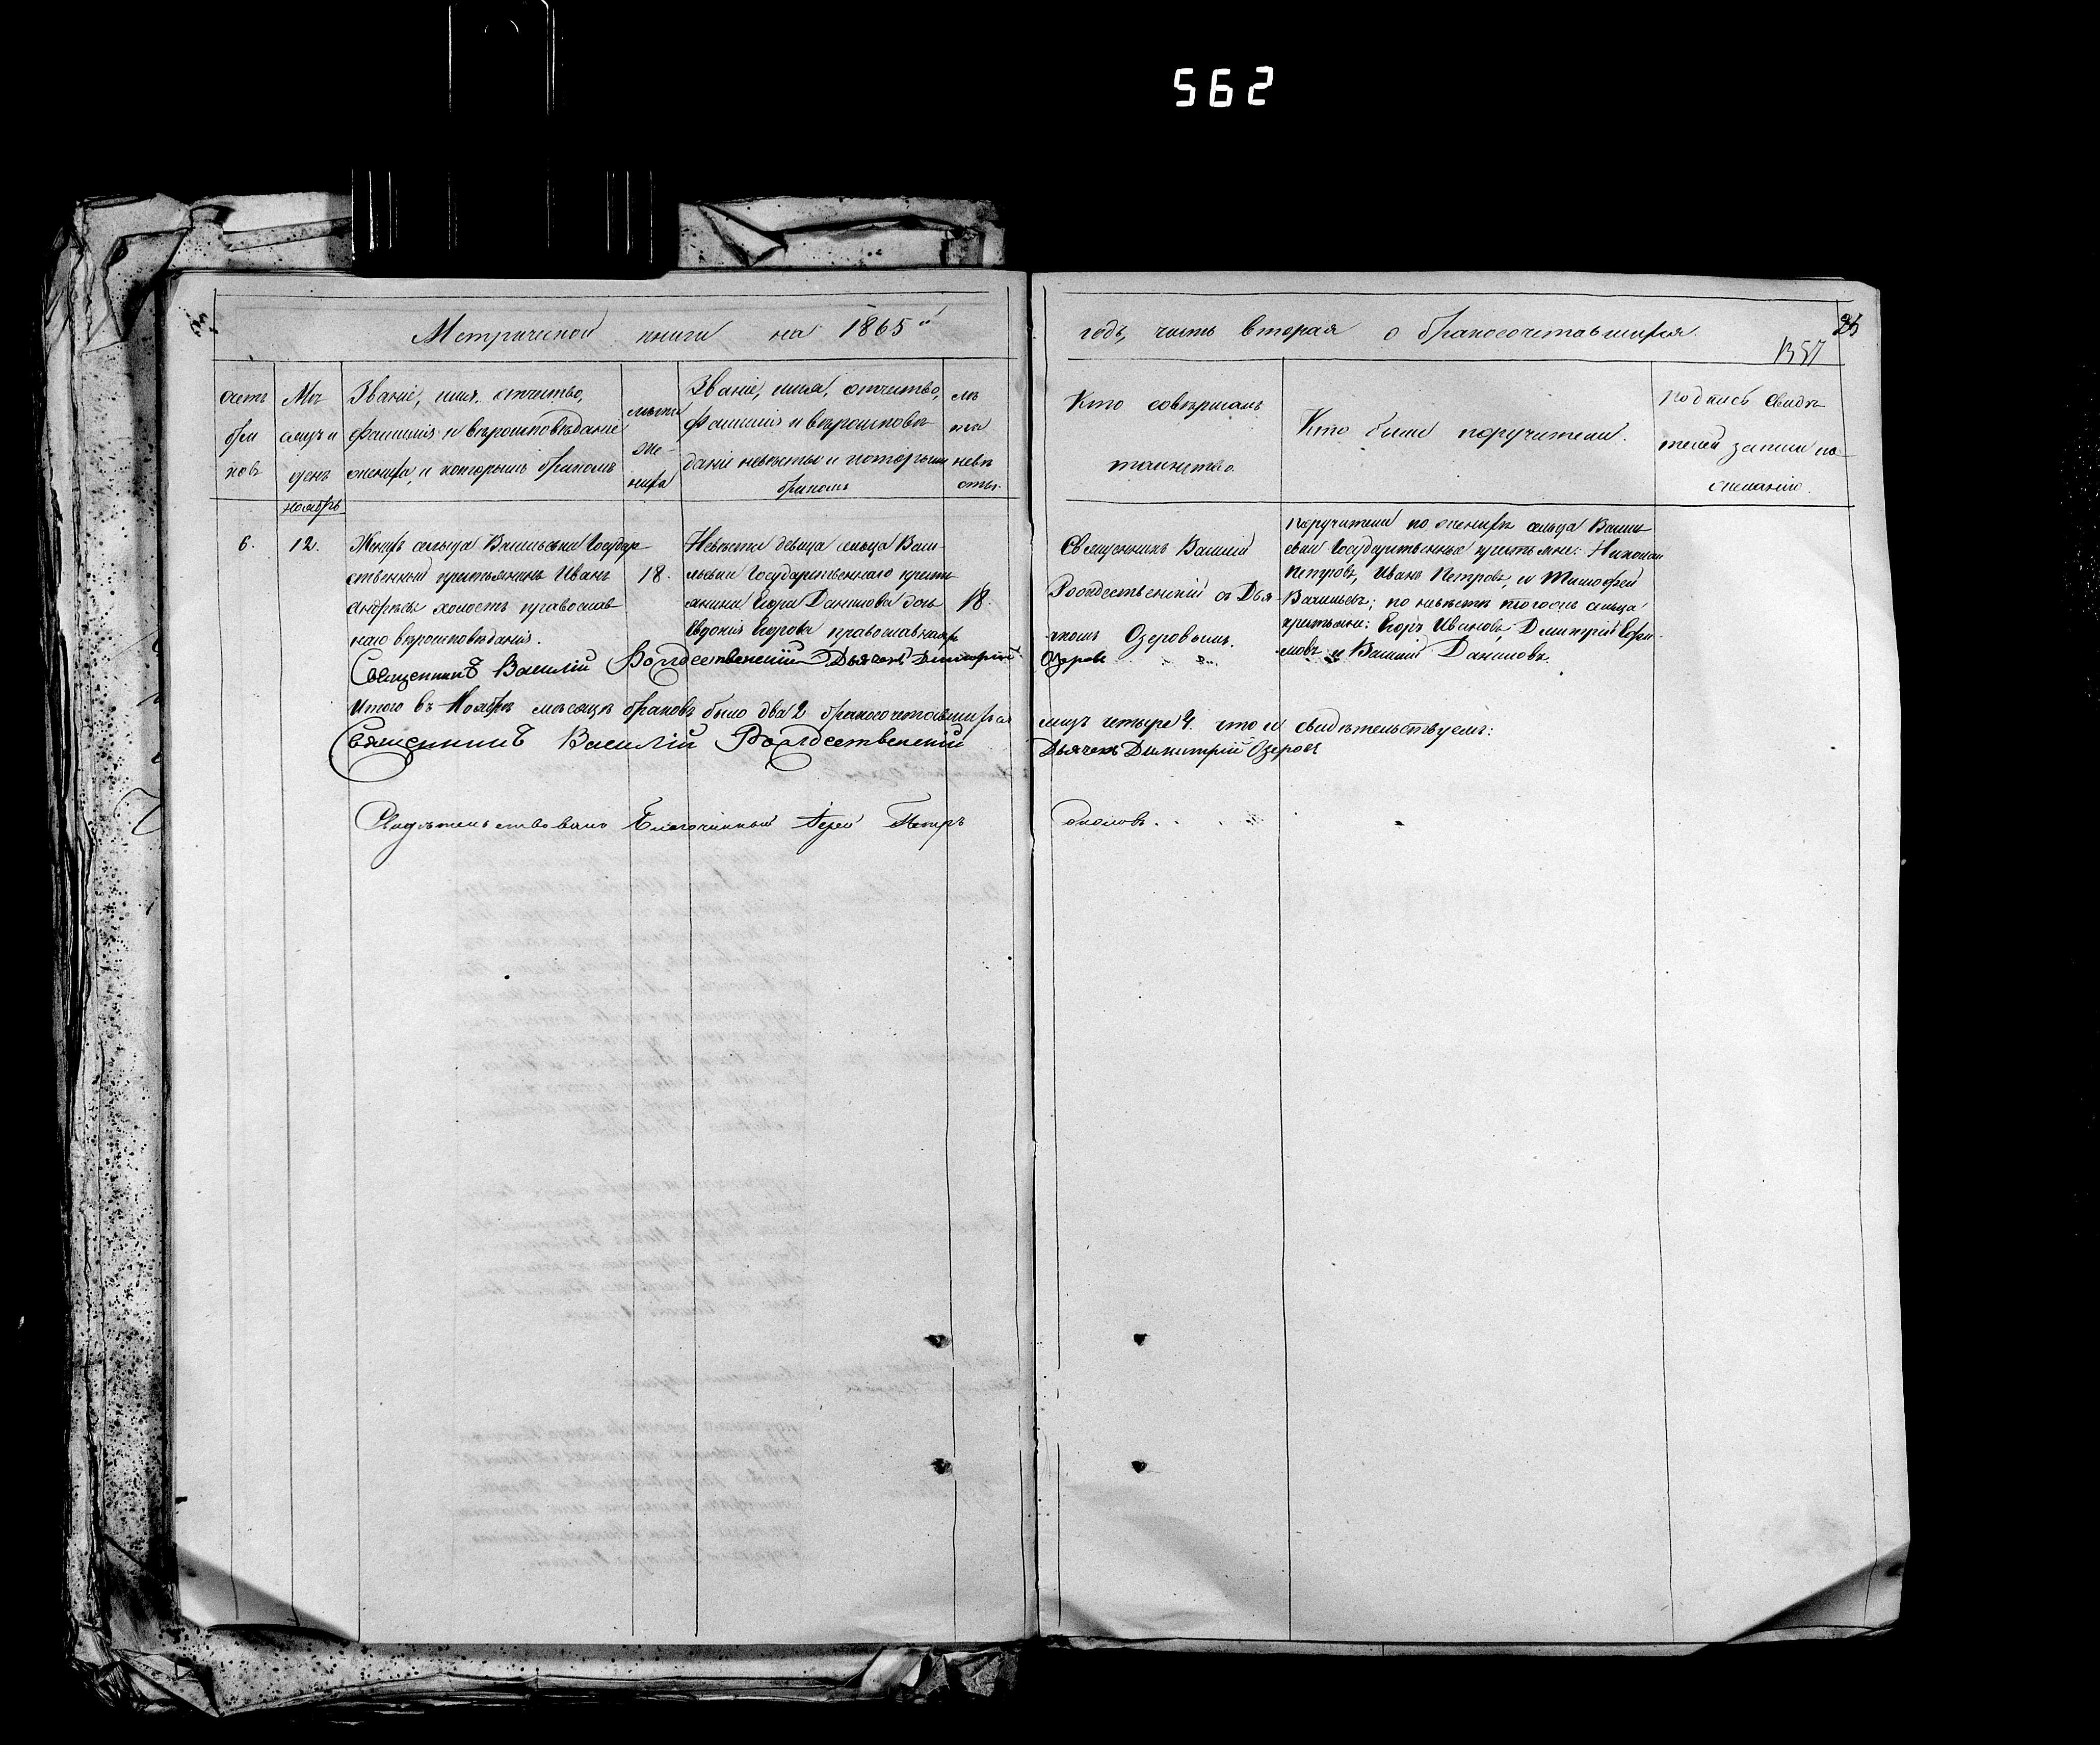 562
Метрической книги на 1865й
годъ, часть вторая о бракосочетавшихся.
1357
счетъ бра ковъ
Мѣ сяцъ и день
Званіе, имя, отчество, фамилія и вѣроисповѣданіе жениха, и которымъ бракомъ
лѣта же- ниха
Званіе, имя, отчество, фамилія и вѣроисповѣ даніе невѣсты и которымъ бракомъ
лѣ та невѣ сты.
Кто совершалъ таинство.
Кто были поручители.
подпись свидѣ телей записи по желанію.
ноябрь
6.
12.
Женихъ сельца Васильевки Государ
ственный крестьянинъ Иванъ
Андреевъ холостъ православ
наго вѣроисповѣданія.
18.
Невѣста девица сельца Васи-
льевки Государственнаго крестья
янина Егора Данилова дочь
Евдокія Егорова православнаго
18.
Священникъ Василій
Рождественскій съ Дья-
чкомъ Озеровымъ.
Поручители по женихѣ сельца Василь
евки Государственные крестьяне: Николай
Петровъ, Иванъ Петровъ, и Тимофей
Васильевъ; по невѣстѣ тогожъ сельца
крестьяне: Егоръ Ивановъ, Дмитрій Ефи-
мовъ и Василій Даниловъ.
Священникъ Василій Рождественскій Дьячекъ Димитрій
Озеровъ
Итого въ Ноябрѣ мѣсяцѣ браковъ было два 2 бракосочетавшихся
лицъ четыре 4. что и свидѣтельствуемъ:
Священникъ Василій Рождественскій
Дьячекъ Димитрій Озеровъ
Свидѣтельствовалъ Благочинный Іерей Петръ